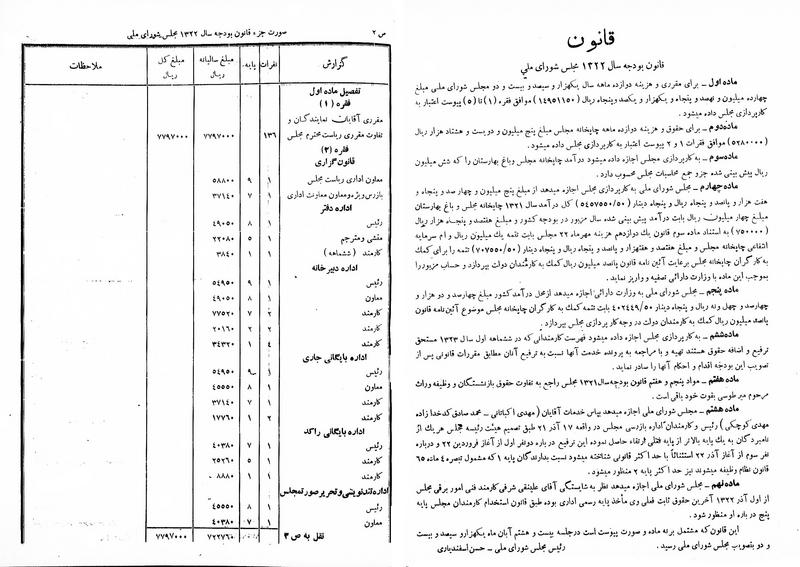 قانون
قانون بودجه سال ۱۳۲۲ مجلس شورای ملی
ماده اول ــ برای مقرری و هزینه دوازده ماهه سال یکهزار و سیصد و بیست و دو مجلس شورای ملی مبلغ
چهارده میلیون و نهصد و پنجاه و یکهزار و یکصد و پنجاه ریال (۱۴۹۵۱۱۵۰) موافق فقره (۱) تا (۵) پیوست اعتبار به
کارپردازی مجلس داده میشود.
ماده دوم ــ برای حقوق و هزینه دوازده ماهه چاپخانه مجلس مبلغ پنج میلیون و دویست و هشتاد هزار ریال
(۵۲۸۰۰۰۰) موافق فقرات ۱ و ۲ پیوست اعتبار به کارپردازی مجلس داده میشود.
ماده سوم ــ به کارپردازی مجلس اجازه داده میشود درآمد چاپخانه مجلس و باغ بهارستان را که شش میلیون
ریال پیش بینی شده جزو جمع محاسبات مجلس محسوب دارد.
ماده چهارم ــ مجلس شورای ملی به کارپردازی مجلس اجازه میدهد از مبلغ پنج میلیون و چهارصد و پنجاه و
هفت هزار و پانصد و پنجاه ریال و پنجاه دینار (۵۴۵۷۵۵۰/۵۰) کل درآمد سال ۱۳۲۱ چاپخانه مجلس و باغ بهارستان
مبلغ چهار میلیون ریال بابت درآمد پیش بینی شده سال مزبور در بودجه کشور و مبلغ هفتصد و پنجاه هزار ریال
(۷۵۰۰۰۰) به استناد ماده سوم قانون یک دوازدهم هزینه مهرماه ۲۲ مجلس بابت تتمه یك میلیون ریال و ام سرمایه
انتفاعی چاپخانه مجلس و مبلغ هفتصد و هفتهزار و پانصد و پنجاه ریال و پنجاه دینار (۷۰۷۵۵۰/۵۰) تتمه را برای کمك
به کارگران چاپخانه مجلس برعایت آئین نامه قانون پانصد میلیون ریال کمك به کارمندان دولت بپردازد و حساب مزبور را
بموجب این ماده با وزارت دارائی تصفیه و واریز نماید.
ماده پنجم ــ مجلس شورای ملی به وزارت دارائی اجازه میدهد از محل درآمد کشور مبلغ چهارصد و دو هزار و
چهارصد و چهل و نه ریال و پنجاه دینار ۴۰۲۴۴۹/۵۰ بابت تتمه کمك به کارگران چاپخانه مجلس موضوع آئین نامه قانون
پانصد میلیون ریال کمك به کارمندان دولت در وجه کارپردازی مجلس بپردازد.
ماده ششم ــ به کارپردازی مجلس اجازه داده میشود فهرست کارمندانی که در ششماهه اول سال ۱۳۲۳ مستحق
ترفیع و اضافه حقوق هستند تهیه و با مراجعه به پرونده خدمت آنها نسبت به ترفیع آنان مطابق مقررات قانونی پس از
تصویب این بودجه اقدام و احکام آنها را صادر نماید.
ماده هفتم ــ مواد پنجم و هفتم قانون بودجه سال ۱۳۲۱ مجلس راجع به تفاوت حقوق بازنشستگان و وظیفه وراث
مرحوم میر طوسی بقوت خود باقی است.
ماده هشتم ــ مجلس شورای ملی اجازه میدهد بپاس خدمات آقایان (مهدی اکباتانی ــ محمد صادق کدخدا زاده
مهدی کوچکی) رئیس و کارمندان اداره بازرسی مجلس در واقعه ۱۷ آذر ۲۱ طبق تصمیم هیئت رئیسه مجلس هر یك از
نامبردگان به یك پایه بالاتر از پایه فعلی ارتقاء حاصل نموده این ترفیع در باره دو نفر اول از آغاز فروردین ۲۲ و درباره
نفر سوم از آغاز آذر ۲۲ استثنائاً با حد اکثر قانونی شناخته میشود نسبت بدارندگان پایه ۱ که مشمول تبصره ۴ ماده ۶۵
قانون نظام وظیفه میشوند نیز حد اکثر پایه ۲ منظور میشود.
ماده نهم ــ مجلس شورای ملی اجازه میدهد نظر به شایستگی آقای علینقی شرفی کارمند فنی امور برقی مجلس
از اول آذر ۱۳۲۲ آخرین حقوق ثابت فعلی وی مأخذ پایه رسمی اداری بوده طبق قانون استخدام کارمندان مجلس پایه
پنج در باره او منظور شود.
این قانون که مشتمل بر نه ماده و صورت پیوست است در جلسه بیست و هشتم آبان ماه یکهزار و سیصد و بیست
و دو بتصویب مجلس شورای ملی رسید.
رئیس مجلس شورای ملی ــ حسن اسفندیاری
ص ۲ صورت جزء قانون بودجه سال ۱۳۲۲ مجلس شورای ملی
گزارش نفرات پایه مبلغ سالیانه ریال مبلغ کل ریال ملاحظات
تفصیل ماده اول
فقره (۱)
مقرری آقایان نمایندگان و
تفاوت مقرری ریاست محترم مجلس ۱۳۶ ۷۷۹۷۰۰۰ ۷۷۹۷۰۰۰
فقره (۲)
قانون گزاری
معاون اداری ریاست مجلس ۱ ۹ ۵۸۸۰۰
بازرس ویژه و معاون معاونت اداری ۱ ۷ ۳۷۱۴۰
اداره دفتر
رئیس ۱ ۸ ۴۹۰۵۰
منشی و مترجم ۱ ۵ ۲۲۰۸۰
کارمند (ششماهه) ۱ ۱ ۳۸۴۰
اداره دبیر خانه
رئیس ۱ ۹ ۵۴۹۵۰
معاون ۱ ۸ ۴۹۰۵۰
کارمند ۲ ۷ ۷۷۵۲۰
کارمند ۲ ۲ ۲۰۱۶۰
کارمند ۴ ۱ ۳۴۳۲۰
اداره بایگانی جاری
رئیس ۱ ۹ ۵۴۹۵۰
معاون ۱ ۸ ۴۵۵۵۰
کارمند ۱ ۷ ۳۷۱۴۰
کارمند ۲ ۱ ۱۷۷۶۰
اداره بایگانی راکد
رئیس ۱ ۷ ۴۰۳۸۰
کارمند ۱ ۵ ۲۵۲۶۰
کارمند ۱ ۱ ۸۸۸۰
اداره تندنویسی و تحریر صورتمجلس
رئیس ۱ ۸ ۴۵۵۵۰
معاون ۱ ۷ ۴۰۳۸۰
نقل به ص ۳ ۷۲۲۷۶۰ ۷۷۹۷۰۰۰